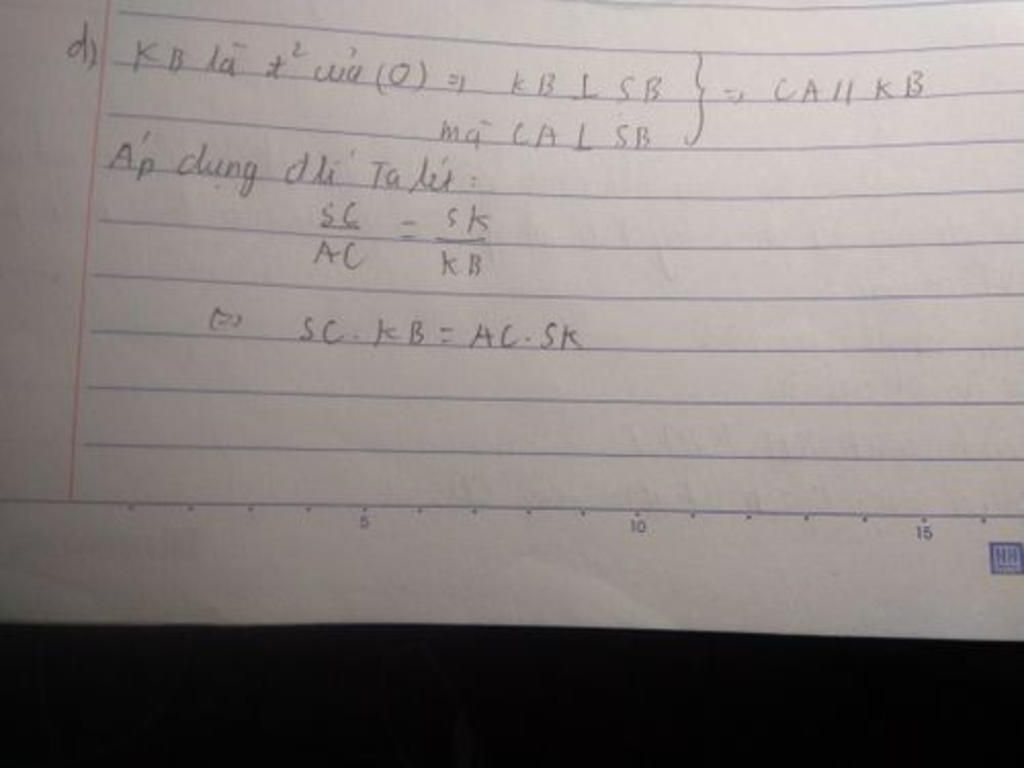 d) KB là t² của (O) => KB ⊥ SB } => CA // KB
mà CA ⊥ SB
Áp dụng đlí Ta lét:
SC/AC = SK/KB
<=> SC . KB = AC . SK
5 10 15